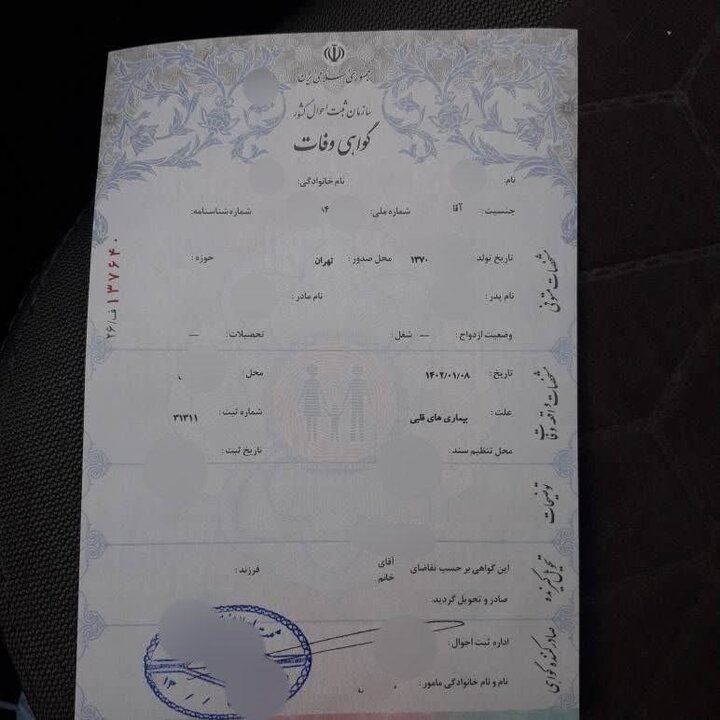 جمهوری اسلامی ایران
سازمان ثبت احوال کشور
گواهی وفات
نام: نام خانوادگی:
جنسیت: آقا شماره ملی: ۱۴ شماره شناسنامه:
تاریخ تولد ۱۳۷۰ محل صدور: تهران حوزه:
نام پدر: نام مادر:
وضعیت ازدواج: — شغل: تحصیلات: —
مشخصات متوفی
۱۳۷۶۴۰ ف/۲۶
تاریخ: ۱۴۰۲/۰۱/۰۸ محل
علت: بیماری های قلبی شماره ثبت: ۳۱۳۱۱
محل تنظیم سند: تاریخ ثبت:
مشخصات واقعه وفات
توضیحات
این گواهی بر حسب تقاضای آقای خانم فرزند:
صادر و تحویل گردید.
تحویل گیرنده
اداره ثبت احوال:
نام و نام خانوادگی مامور:
صادر کننده گواهی